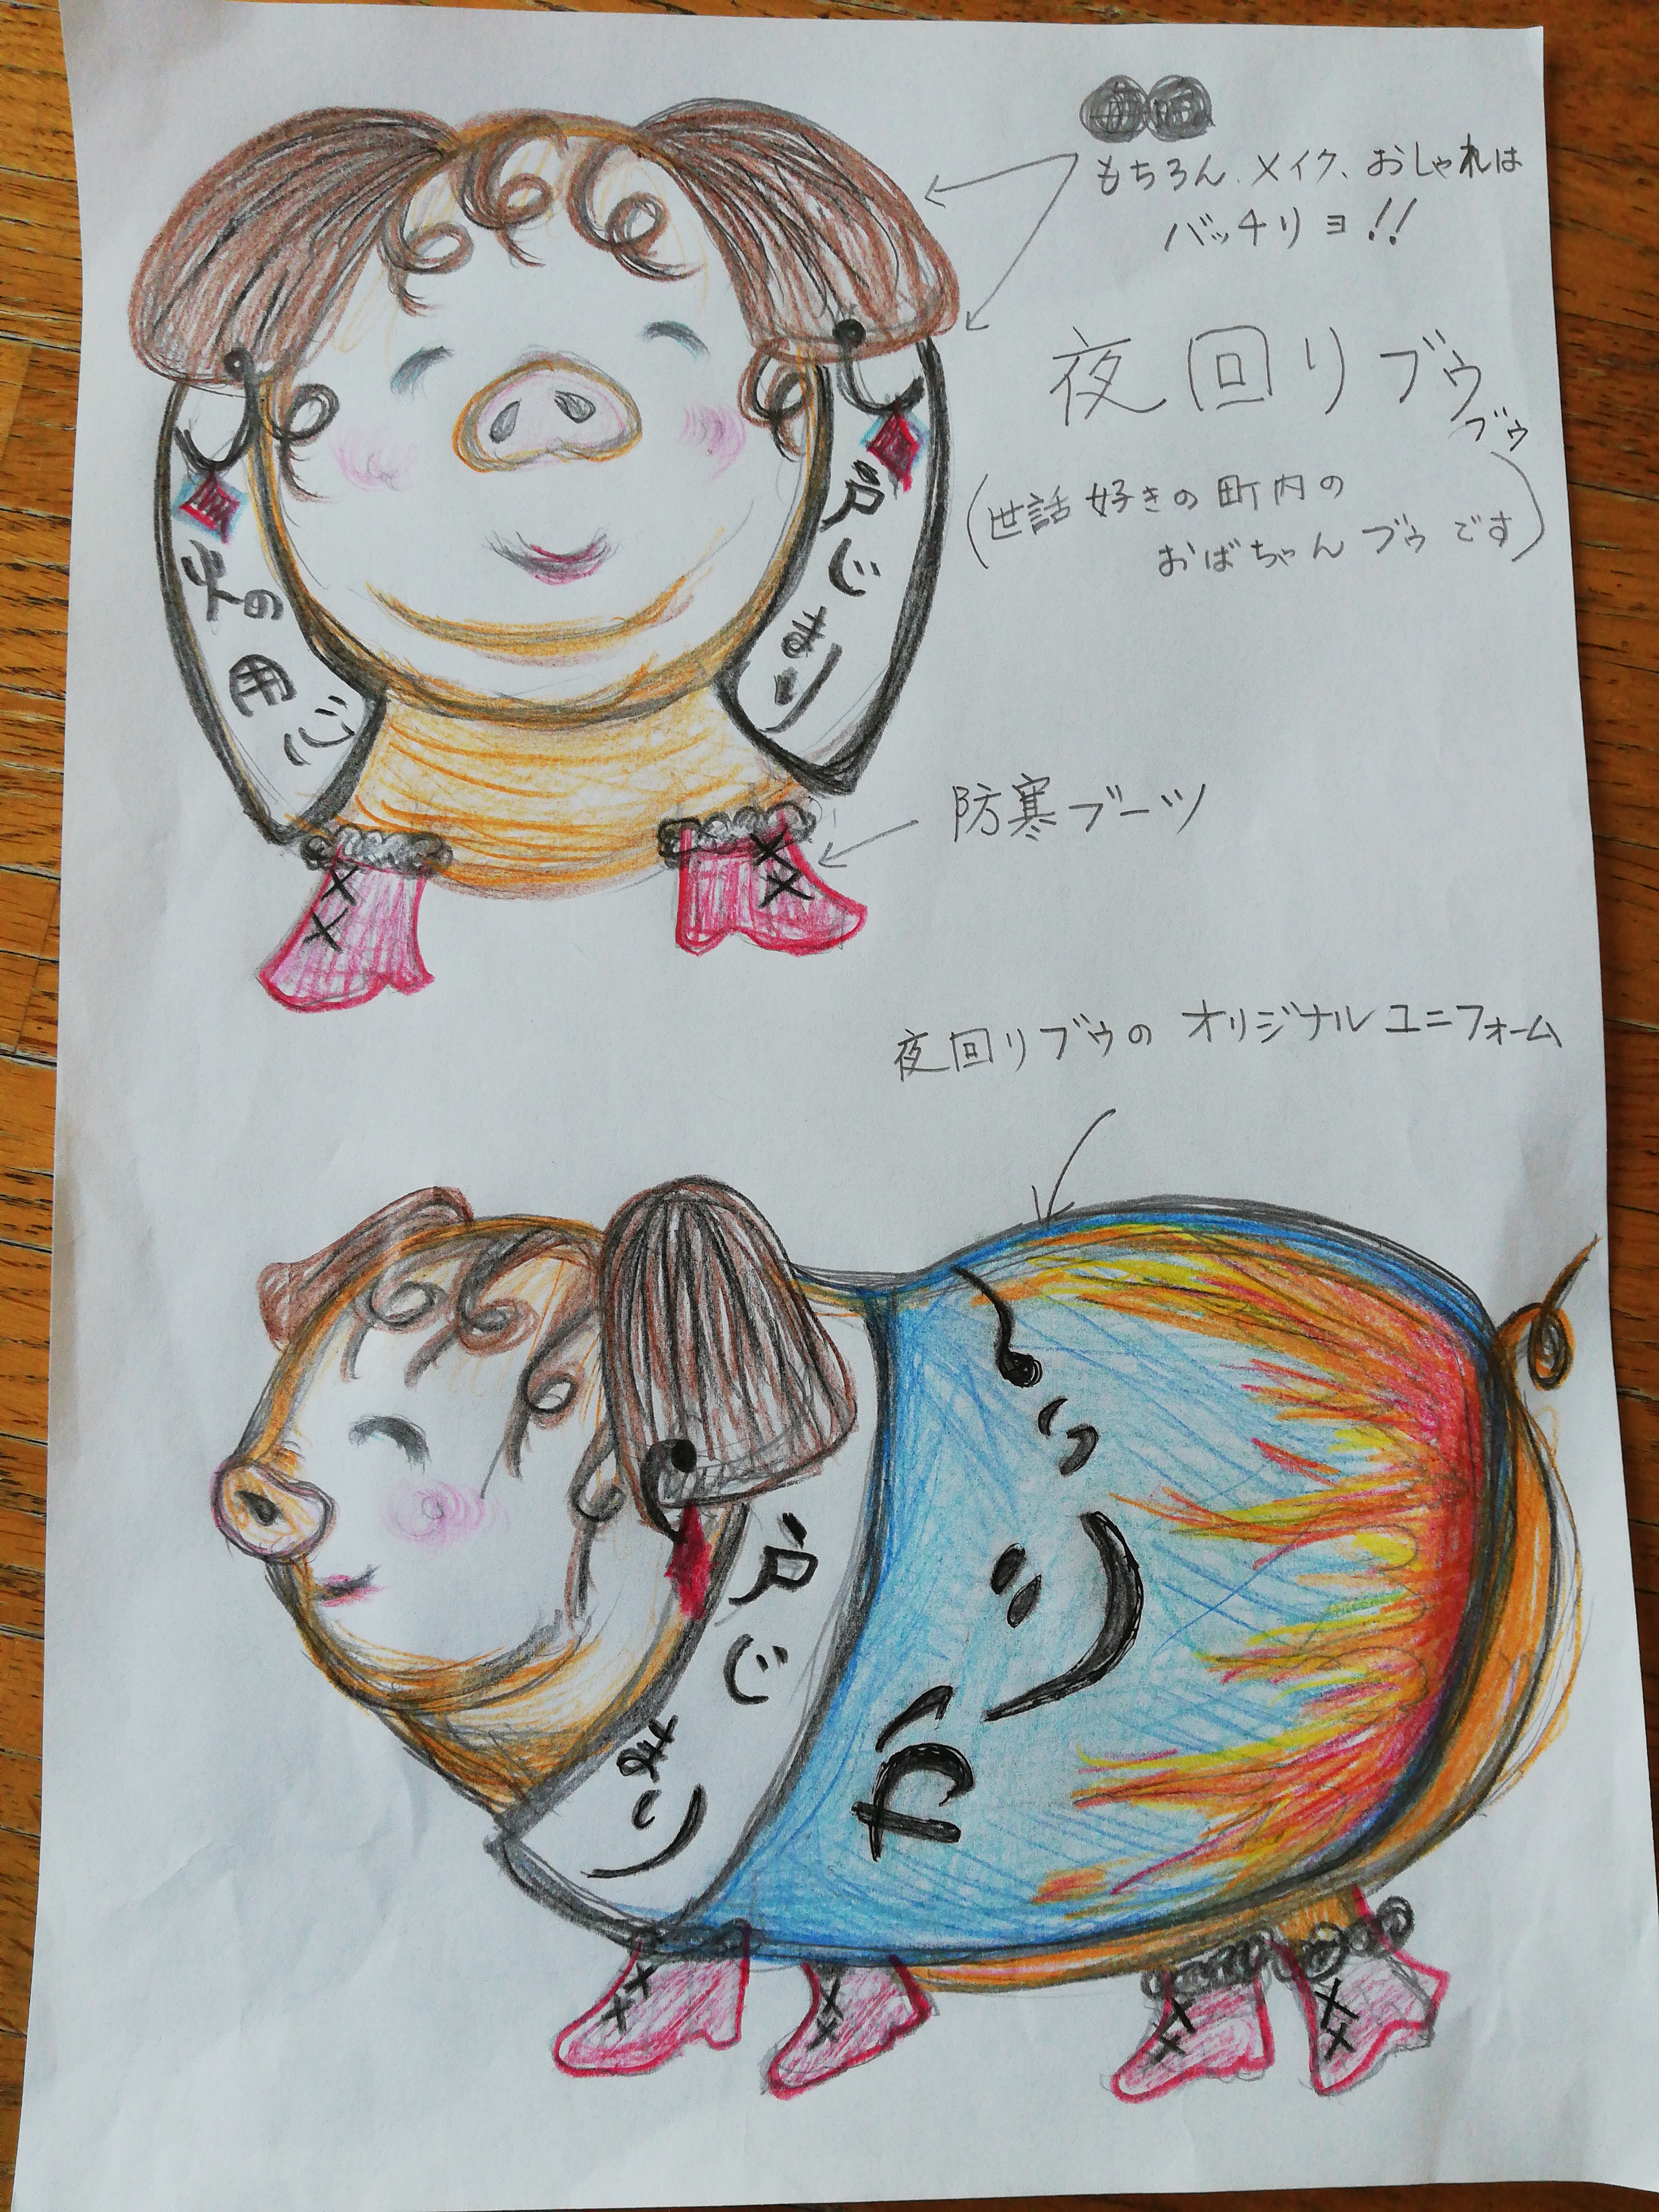 もちろん、メイク、おしゃれは
バッチリョ!!
夜回りブゥ
ブゥ
(世話好きの町内の
おばちゃんブゥです)
火の用心
戸じまり
防寒ブーツ
夜回りブゥのオリジナルユニフォーム
戸じまり